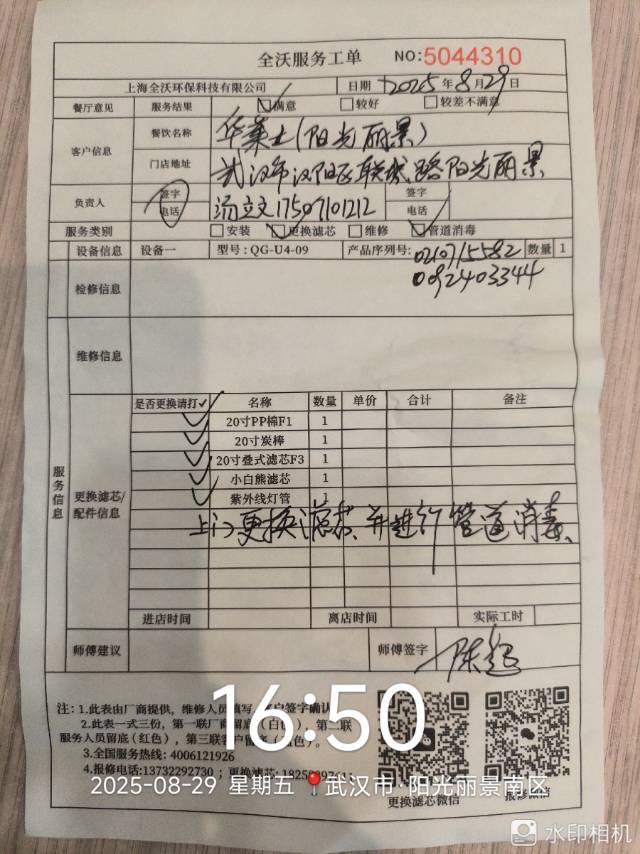 全沃服务工单 NO:5044310
上海全沃环保科技有限公司 日期 2025年8月29日
餐厅意见 服务结果 ☑满意 □较好 □较差不满意
客户信息 餐饮名称 华莱士(阳光丽景)
门店地址 武汉市汉阳区联城路阳光丽景
负责人 签字 电话 汤立文17507101212 签字 电话
服务类别 □安装 ☑更换滤芯 □维修 ☑管道消毒
设备信息 设备一 型号:QG-U4-09 产品序列号: 0210715582 数量 1
0092403344
检修信息
维修信息
服务信息
更换滤芯/配件信息
是否更换请打✓ 名称 数量 单价 合计 备注
✓ 20寸PP棉F1 1
✓ 20寸炭棒 1
✓ 20寸叠式滤芯F3 1
✓ 小白熊滤芯 1
✓ 紫外线灯管 1
上门更换滤芯,并进行管道消毒
进店时间 离店时间 实际工时
师傅建议 师傅签字 陈超
注:1.此表由厂商提供,维修人员填写,客户签字确认
2.此表一式三份,第一联厂商留底(白色),第二联
服务人员留底(红色),第三联客户留底
3.全国服务热线:4006121926
4.报修电话:13732292730;更换滤芯:
更换滤芯微信 报修微信
16:50
2025-08-29 星期五 武汉市·阳光丽景南区
水印相机